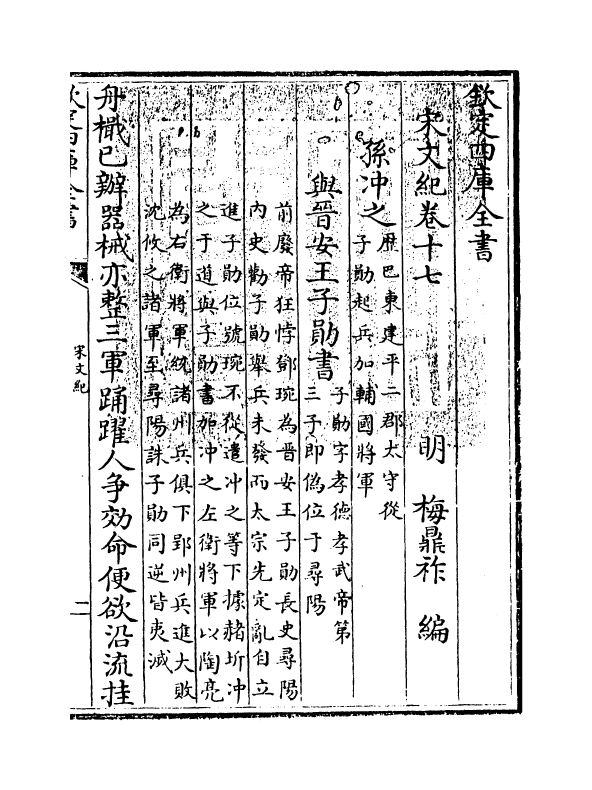 欽定四庫全書
宋文紀卷十七　明　梅鼎祚　編
孫沖之
歷巴東建平二郡太守從
子勛起兵加輔國將軍
與晉安王子勛書
子勛字孝德孝武帝第
三子即偽位于尋陽
前廢帝狂悖鄧琬為晉安王子勛長史尋陽
內史勸子勛舉兵未發而太宗先定亂自立
進子勛位號琬不從遣沖之等下據赭圻沖
之于道與子勛書加沖之左衛將軍以陶亮
為右衛將軍統諸州兵俱下郢州兵進大敗
沈攸之諸軍至尋陽誅子勛同逆皆夷滅
舟檝已辦器械亦整三軍踊躍人争効命便欲沿流挂
欽定四庫全書
宋文紀